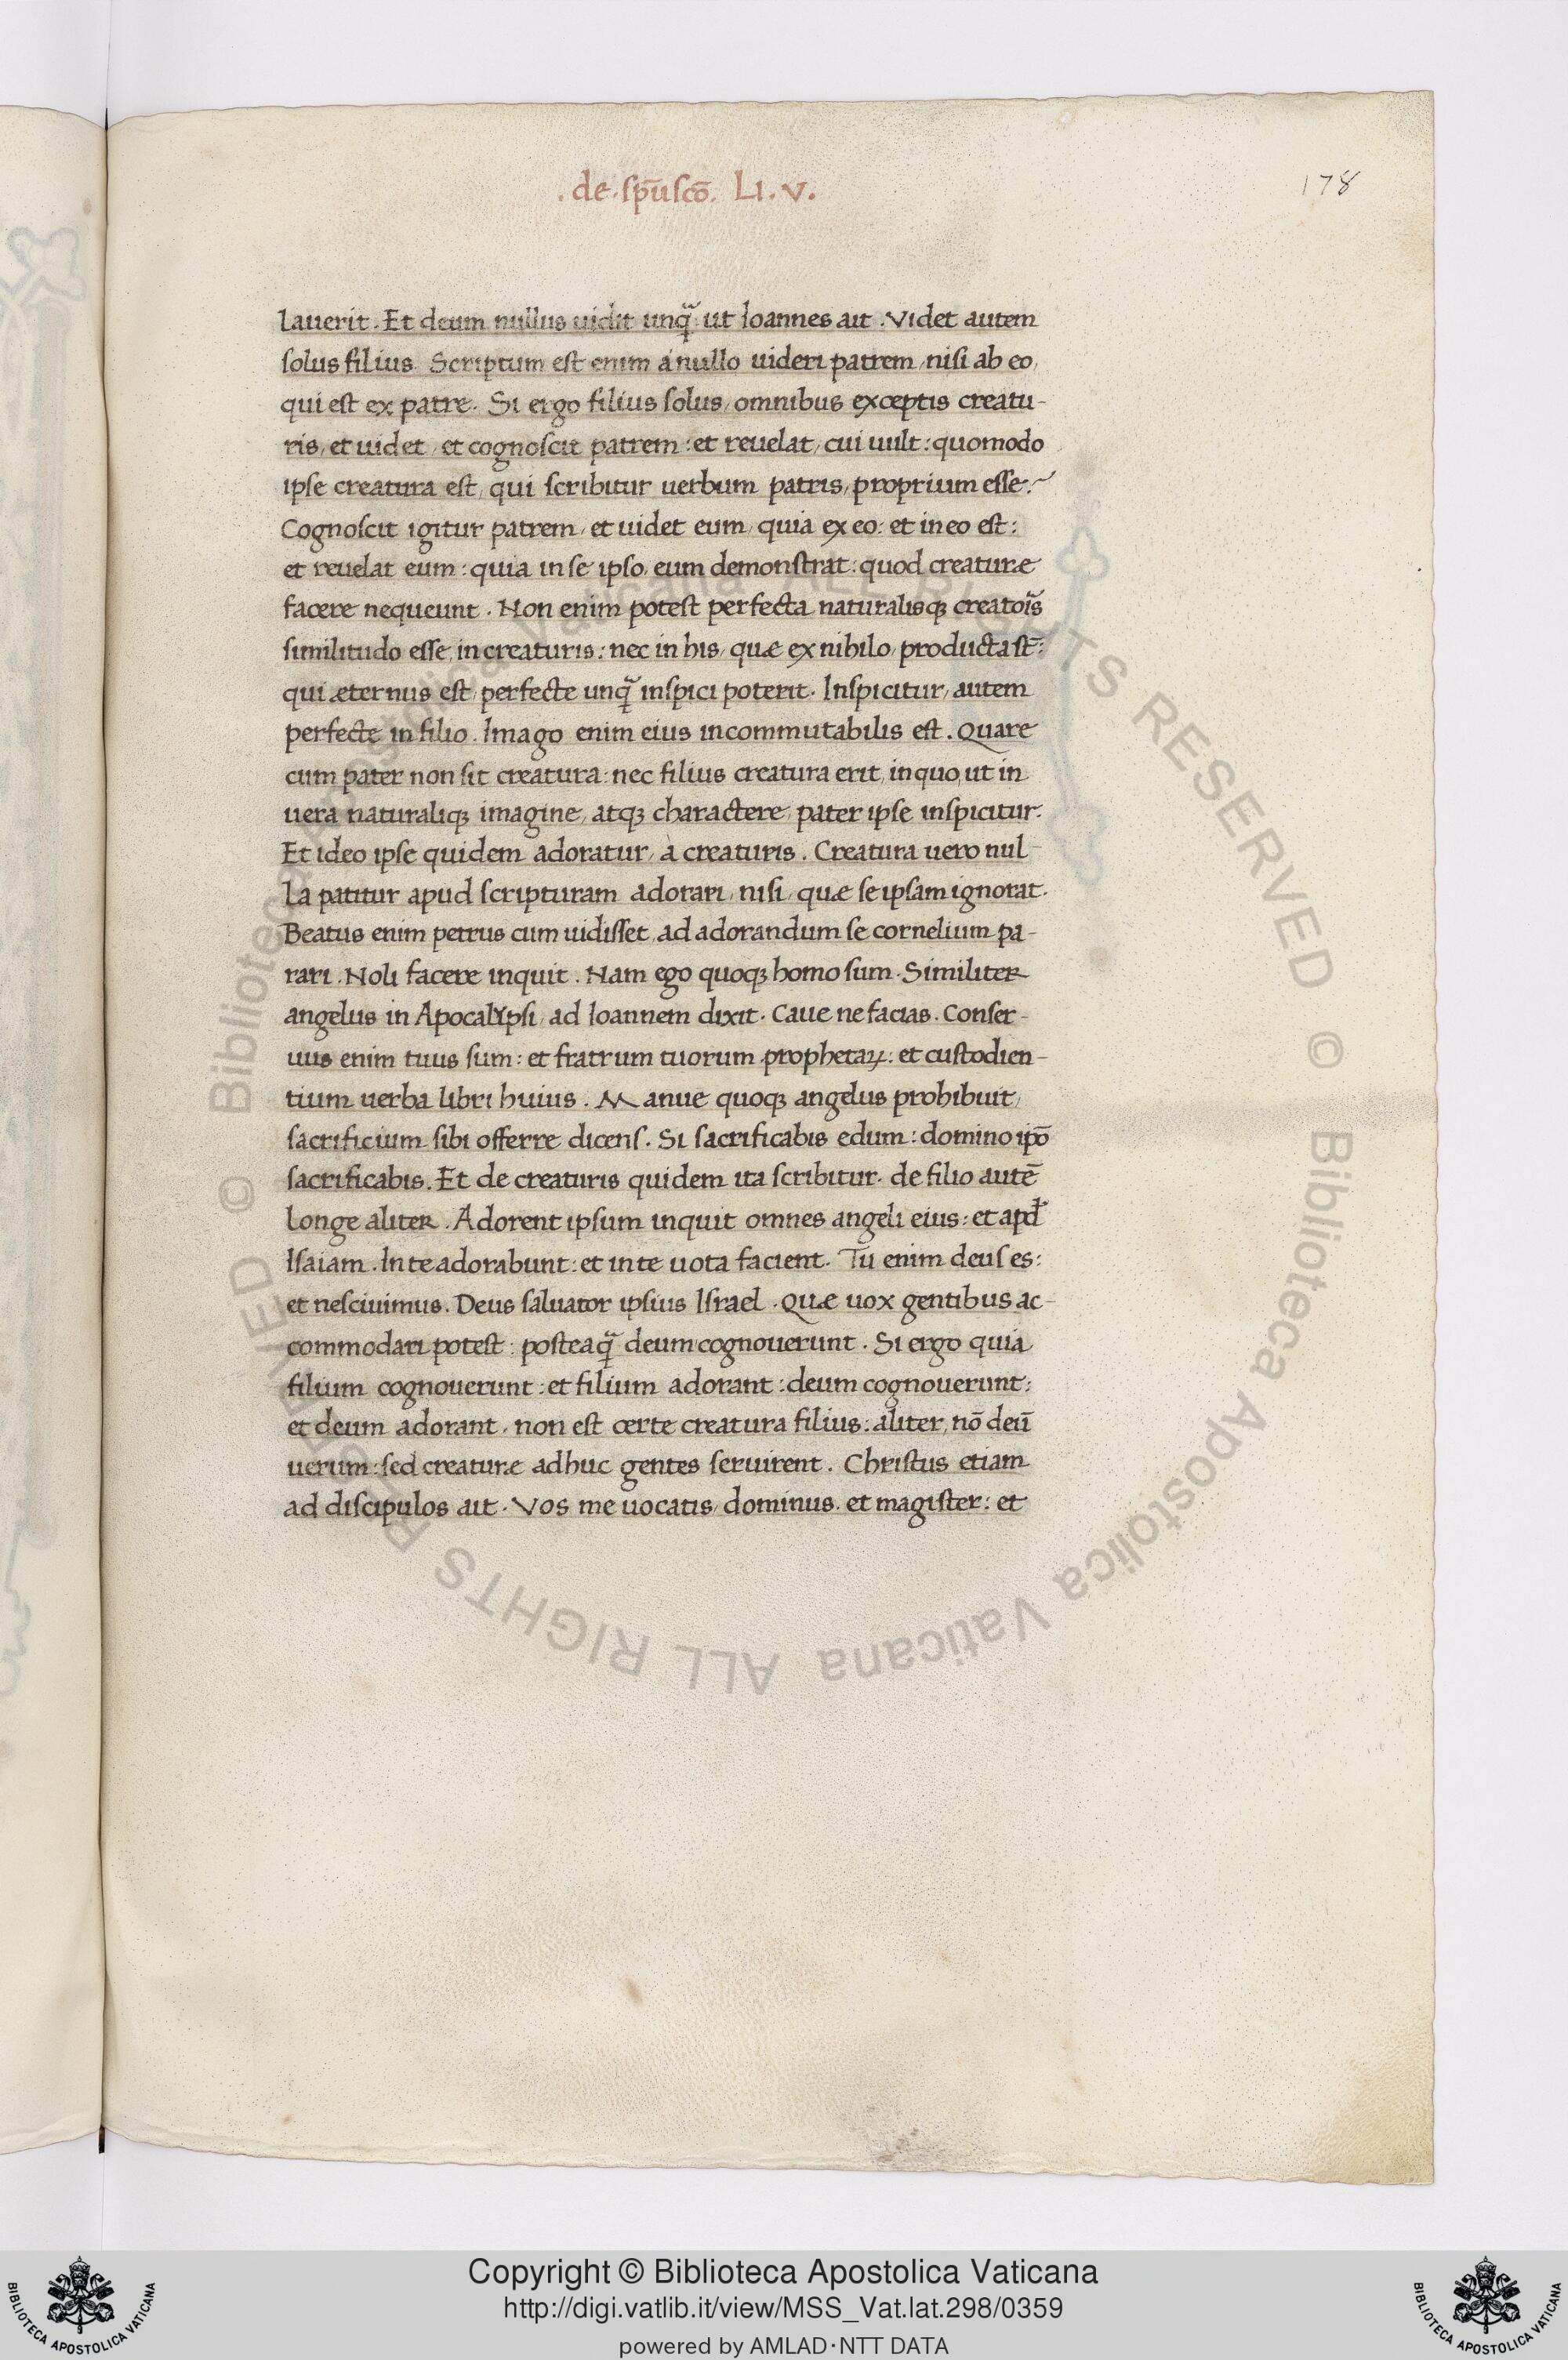 . de . sp̄u scō. LI. V.
178
lauerit. Et deum nullus uidit unq̃: ut Ioannes ait. Videt autem
solus filius. Scriptum est enim á nullo uideri patrem, nisi ab eo,
qui est ex patre. Si ergo filius solus, omnibus exceptis creatu-
ris, et uidet, et cognoscit patrem: et reuelat, cui uult: quomodo
ipse creatura est, qui scribitur uerbum patris, proprium esse?
Cognoscit igitur patrem, et uidet eum, quia ex eo: et in eo est:
et reuelat eum: quia in se ipso, eum demonstrat: quod creaturæ
facere nequeunt. Non enim potest perfecta naturalisq; creatoı̃s
similitudo esse, in creaturis: nec in his, quæ ex nihilo, producta st̄:
qui æternus est, perfecte unq̃ inspici poterit. Inspicitur, autem
perfecte in filio. Imago enim eius incommutabilis est. Quare
cum pater non sit creatura: nec filius creatura erit, in quo, ut in
uera naturaliq; imagine, atq; charactere, pater ipse inspicitur.
Et ideo ipse quidem adoratur, a creaturis. Creatura uero nul-
la patitur apud scripturam adorari, nisi, quæ se ipsam ignorat.
Beatus enim petrus cum uidisset, ad adorandum se cornelium pa-
rari. Noli facere inquit. Nam ego quoq; homo sum. Similiter
angelus in Apocalypsi, ad Ioannem dixit. Caue ne facias. Conser-
uus enim tuus sum: et fratrum tuorum prophetaꝝ: et custodien-
tium uerba libri huius. Manue quoq; angelus prohibuit,
sacrificium sibi offerre dicens. Si sacrificabis edum: domino ip̄o
sacrificabis. Et de creaturis quidem ita scribitur. de filio autē
longe aliter. Adorent ipsum inquit omnes angeli eius: et apd̃
Isaiam. In te adorabunt: et in te uota facient. Tu enim deus es:
et nesciuimus. Deus saluator ipsius Israel. Quæ uox gentibus ac-
commodari potest: posteaq̃ deum cognouerunt. Si ergo quia
filium cognouerunt: et filium adorant: deum cognouerunt:
et deum adorant. non est certe creatura filius: aliter, nō deū
uerum: sed creaturæ adhuc gentes seruirent. Christus etiam
ad discipulos ait. Vos me uocatis, dominus. et magister: et
© Biblioteca Apostolica Vaticana ALL RIGHTS RESERVED © Biblioteca Apostolica Vaticana ALL RIGHTS RESERVED
BIBLIOTECA APOSTOLICA VATICANA
Copyright © Biblioteca Apostolica Vaticana
http://digi.vatlib.it/view/MSS_Vat.lat.298/0359
powered by AMLAD·NTT DATA
BIBLIOTECA APOSTOLICA VATICANA